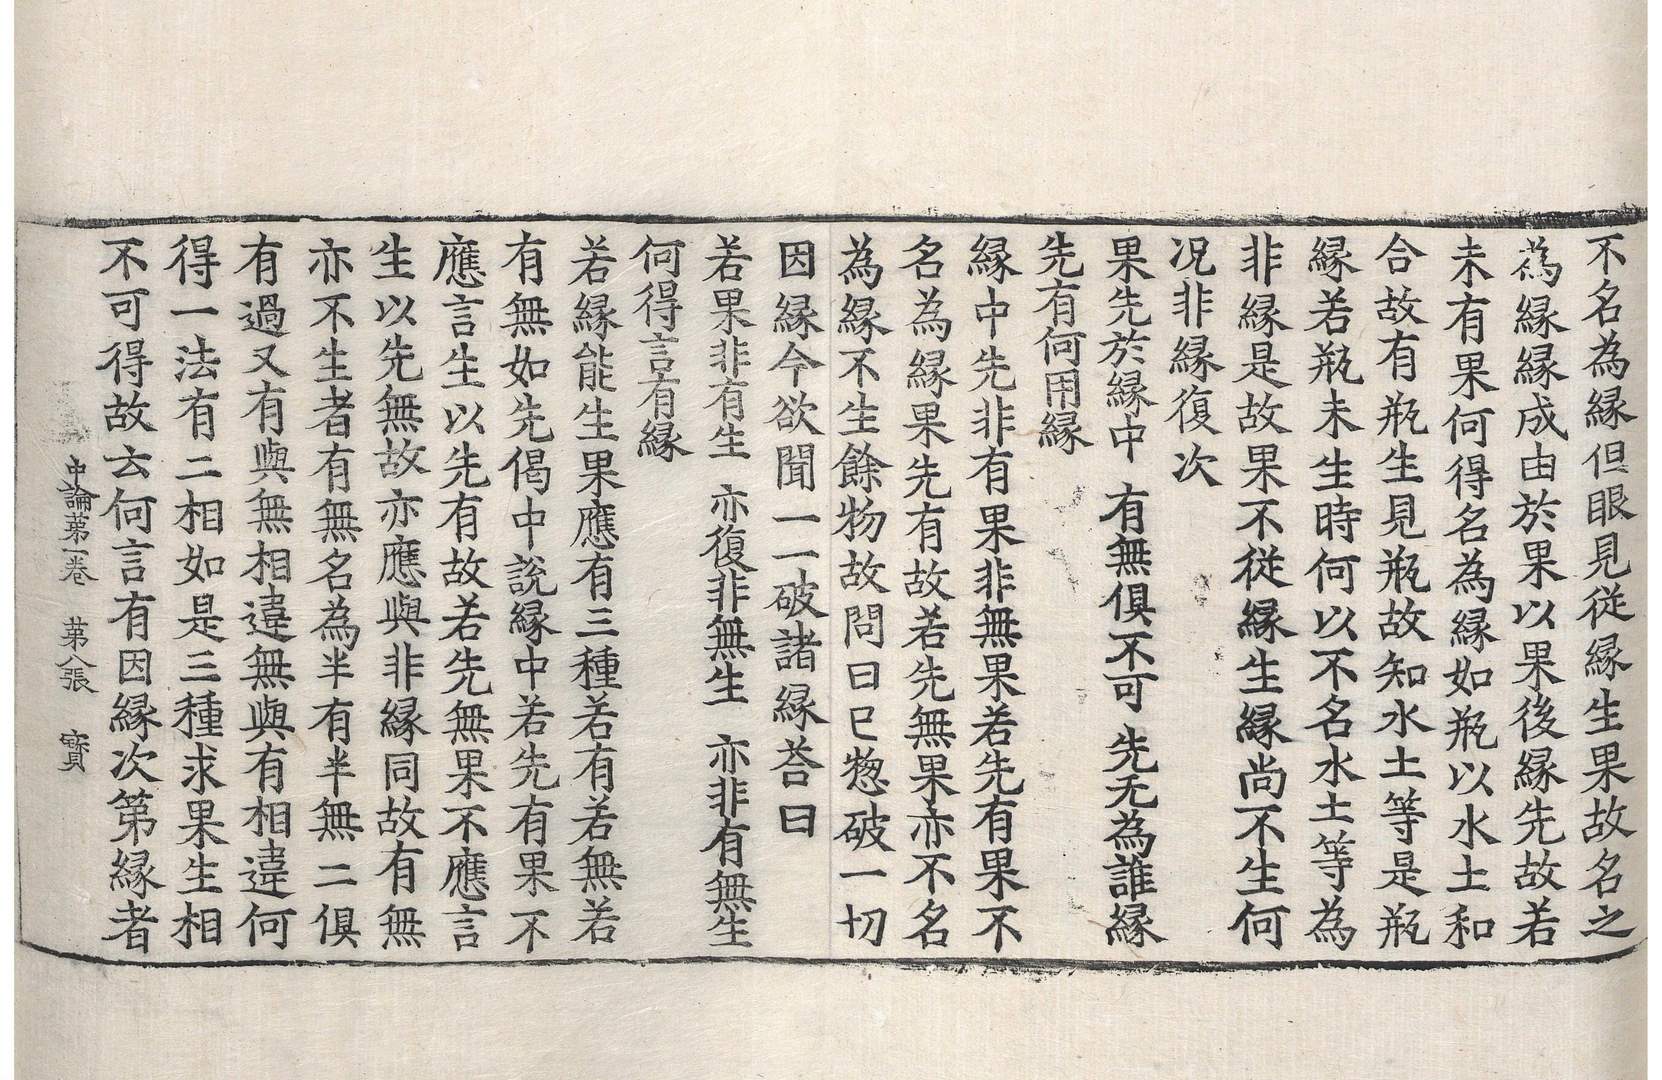 不名為縁但眼見従縁生果故名之
為縁縁成由於果以果後縁先故若
未有果何得名為縁如瓶以水土和
合故有瓶生見瓶故知水土等是瓶
縁若瓶未生時何以不名水土等為
非縁是故果不従縁生縁尚不生何
况非縁復次
果先於縁中　有無俱不可　先无為誰縁
先有何用縁
縁中先非有果非無果若先有果不
名為縁果先有故若先無果亦不名
為縁不生餘物故問曰已惣破一切
因縁今欲聞一一破諸縁荅曰
若果非有生　亦復非無生　亦非有無生
何得言有縁
若縁能生果應有三種若有若無若
有無如先偈中說縁中若先有果不
應言生以先有故若先無果不應言
生以先無故亦應與非縁同故有無
亦不生者有無名為半有半無二俱
有過又有與無相違無與有相違何
得一法有二相如是三種求果生相
不可得故去何言有因縁次第縁者
中論第一卷　第八張　寳